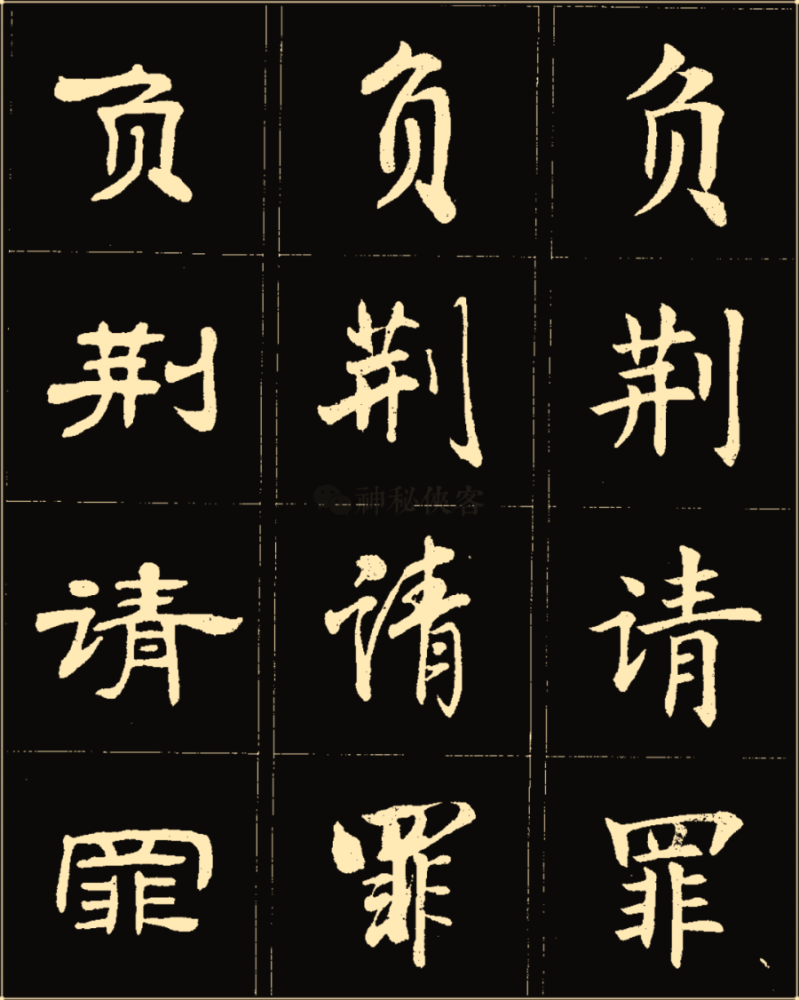 负 负 负
荆 荆 荆
请 请 请
罪 罪 罪
神秘侠客